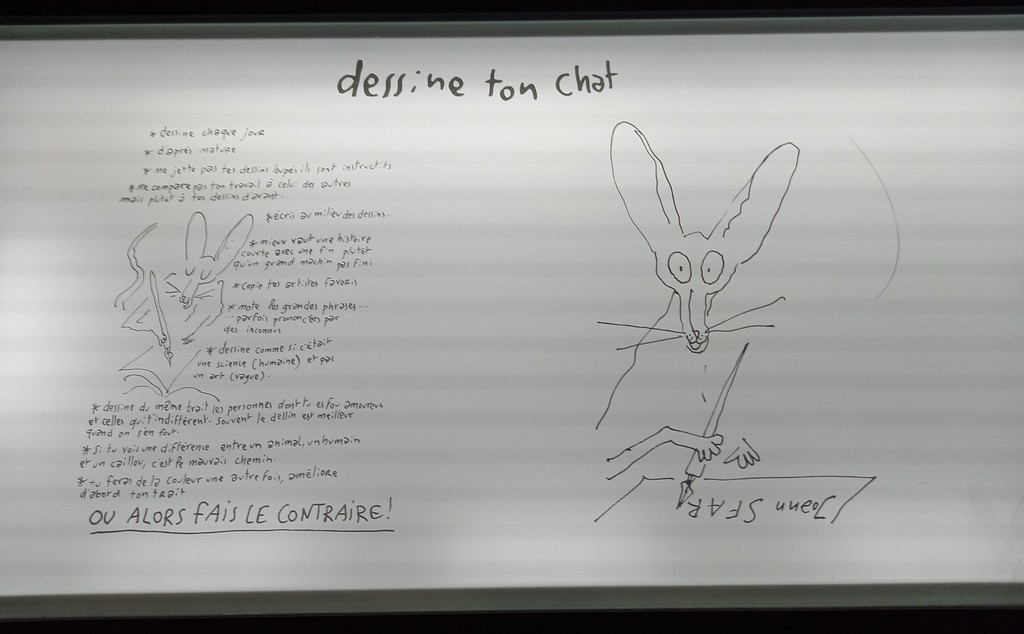 dessine ton chat
* dessine chaque jour
* d'après nature
* ne jette pas tes dessins loupés ils sont instructifs
* ne compare pas ton travail à celui des autres
mais plutôt à tes dessins d'avant.
* écris au milieu des dessins.
* mieux vaut une histoire
courte avec une fin plutôt
qu'un grand machin pas fini
* copie tes artistes favoris
* note les grandes phrases...
... parfois prononcées par
des inconnus
* dessine comme si c'était
une science (humaine) et pas
un art (vague).
* dessine du même trait les personnes dont tu es fou amoureux
et celles qui t'indiffèrent. souvent le dessin est meilleur
quand on s'en fout.
* si tu vois une différence entre un animal, un humain
et un caillou, c'est le mauvais chemin.
* tu feras de la couleur une autre fois, améliore
d'abord ton trait
OU ALORS FAIS LE CONTRAIRE!
Joann SFAR